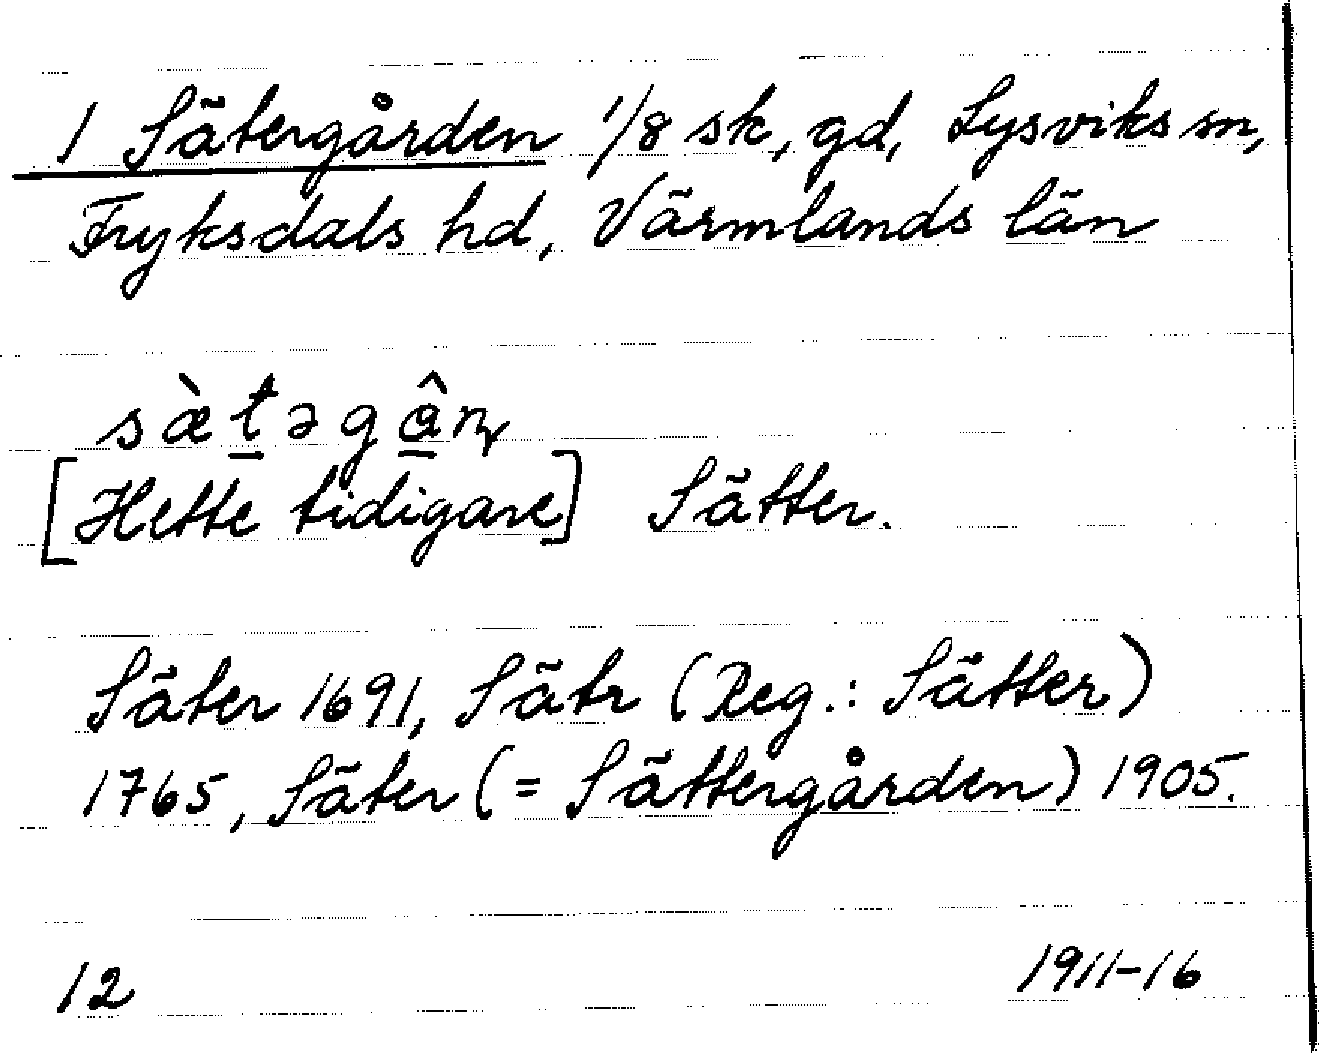 1 Sätergården 1/8 sk, gd, Lysviks sn,
Fryksdals hd, Värmlands län
sæ̀t̲əgα̲̂ɳ
[Hette tidigare] Sätter.
Säter 1691, Sätr (Reg.: Sätter)
1765, Säter (= Sättergården) 1905.
12 1911-16